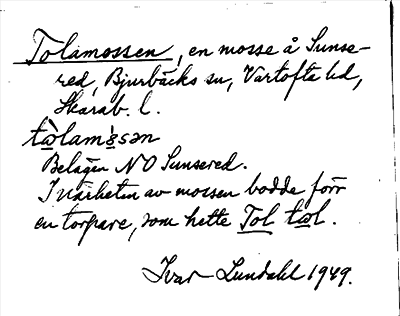 Tolamossen, en mosse å Sunse-
red, Bjurbäcks sn, Vartofta hd,
Skarab. l.
tòlamɔ̀sən
Belägen NO Sunsered.
I närheten av mossen bodde förr
en torpare, som hette Tol tɷl.
Ivar Lundahl 1949.